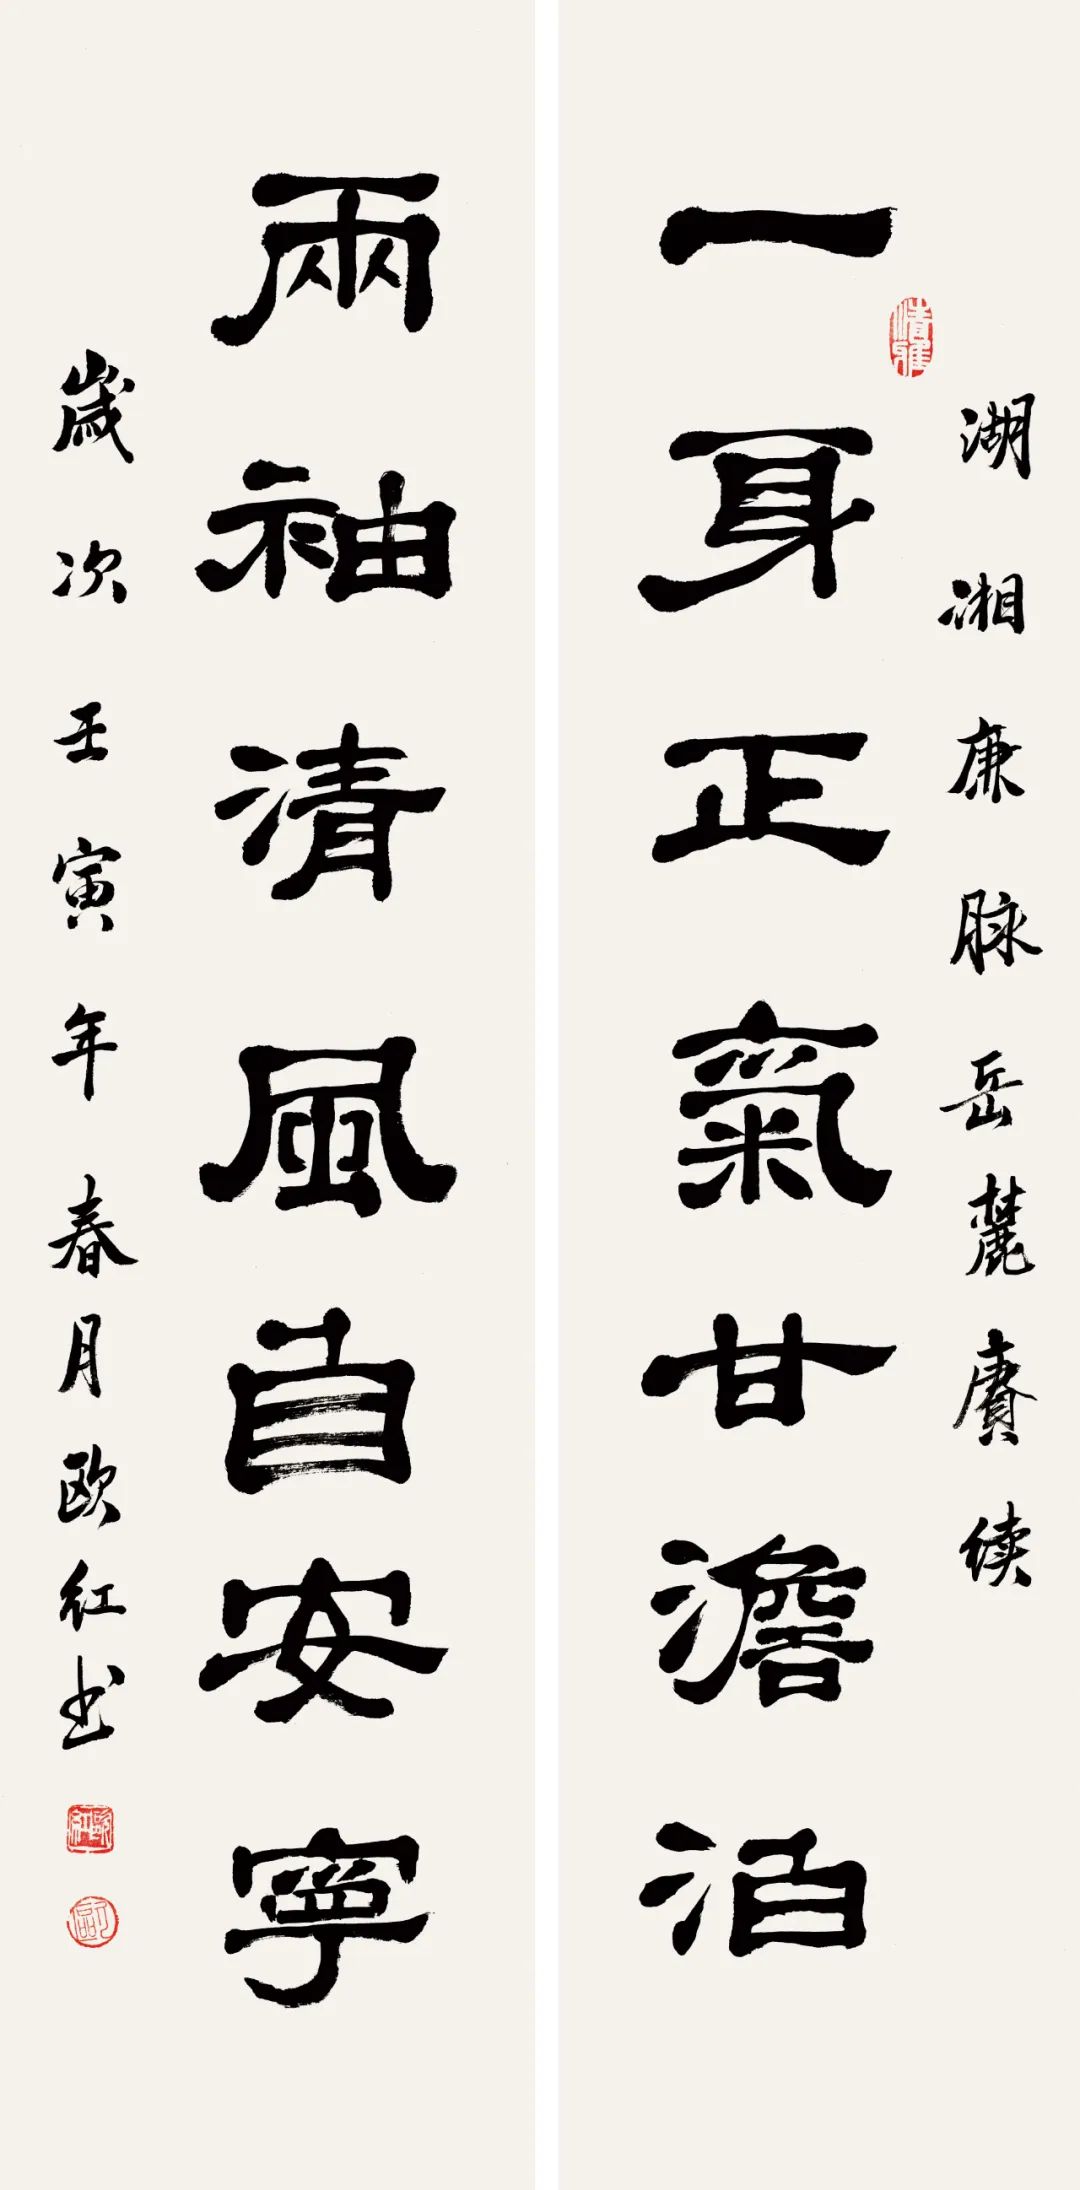 湖湘廉脉岳麓赓续
一身正氣甘澹泊
清雅
兩袖清風自安寧
歲次壬寅年春月欧红书